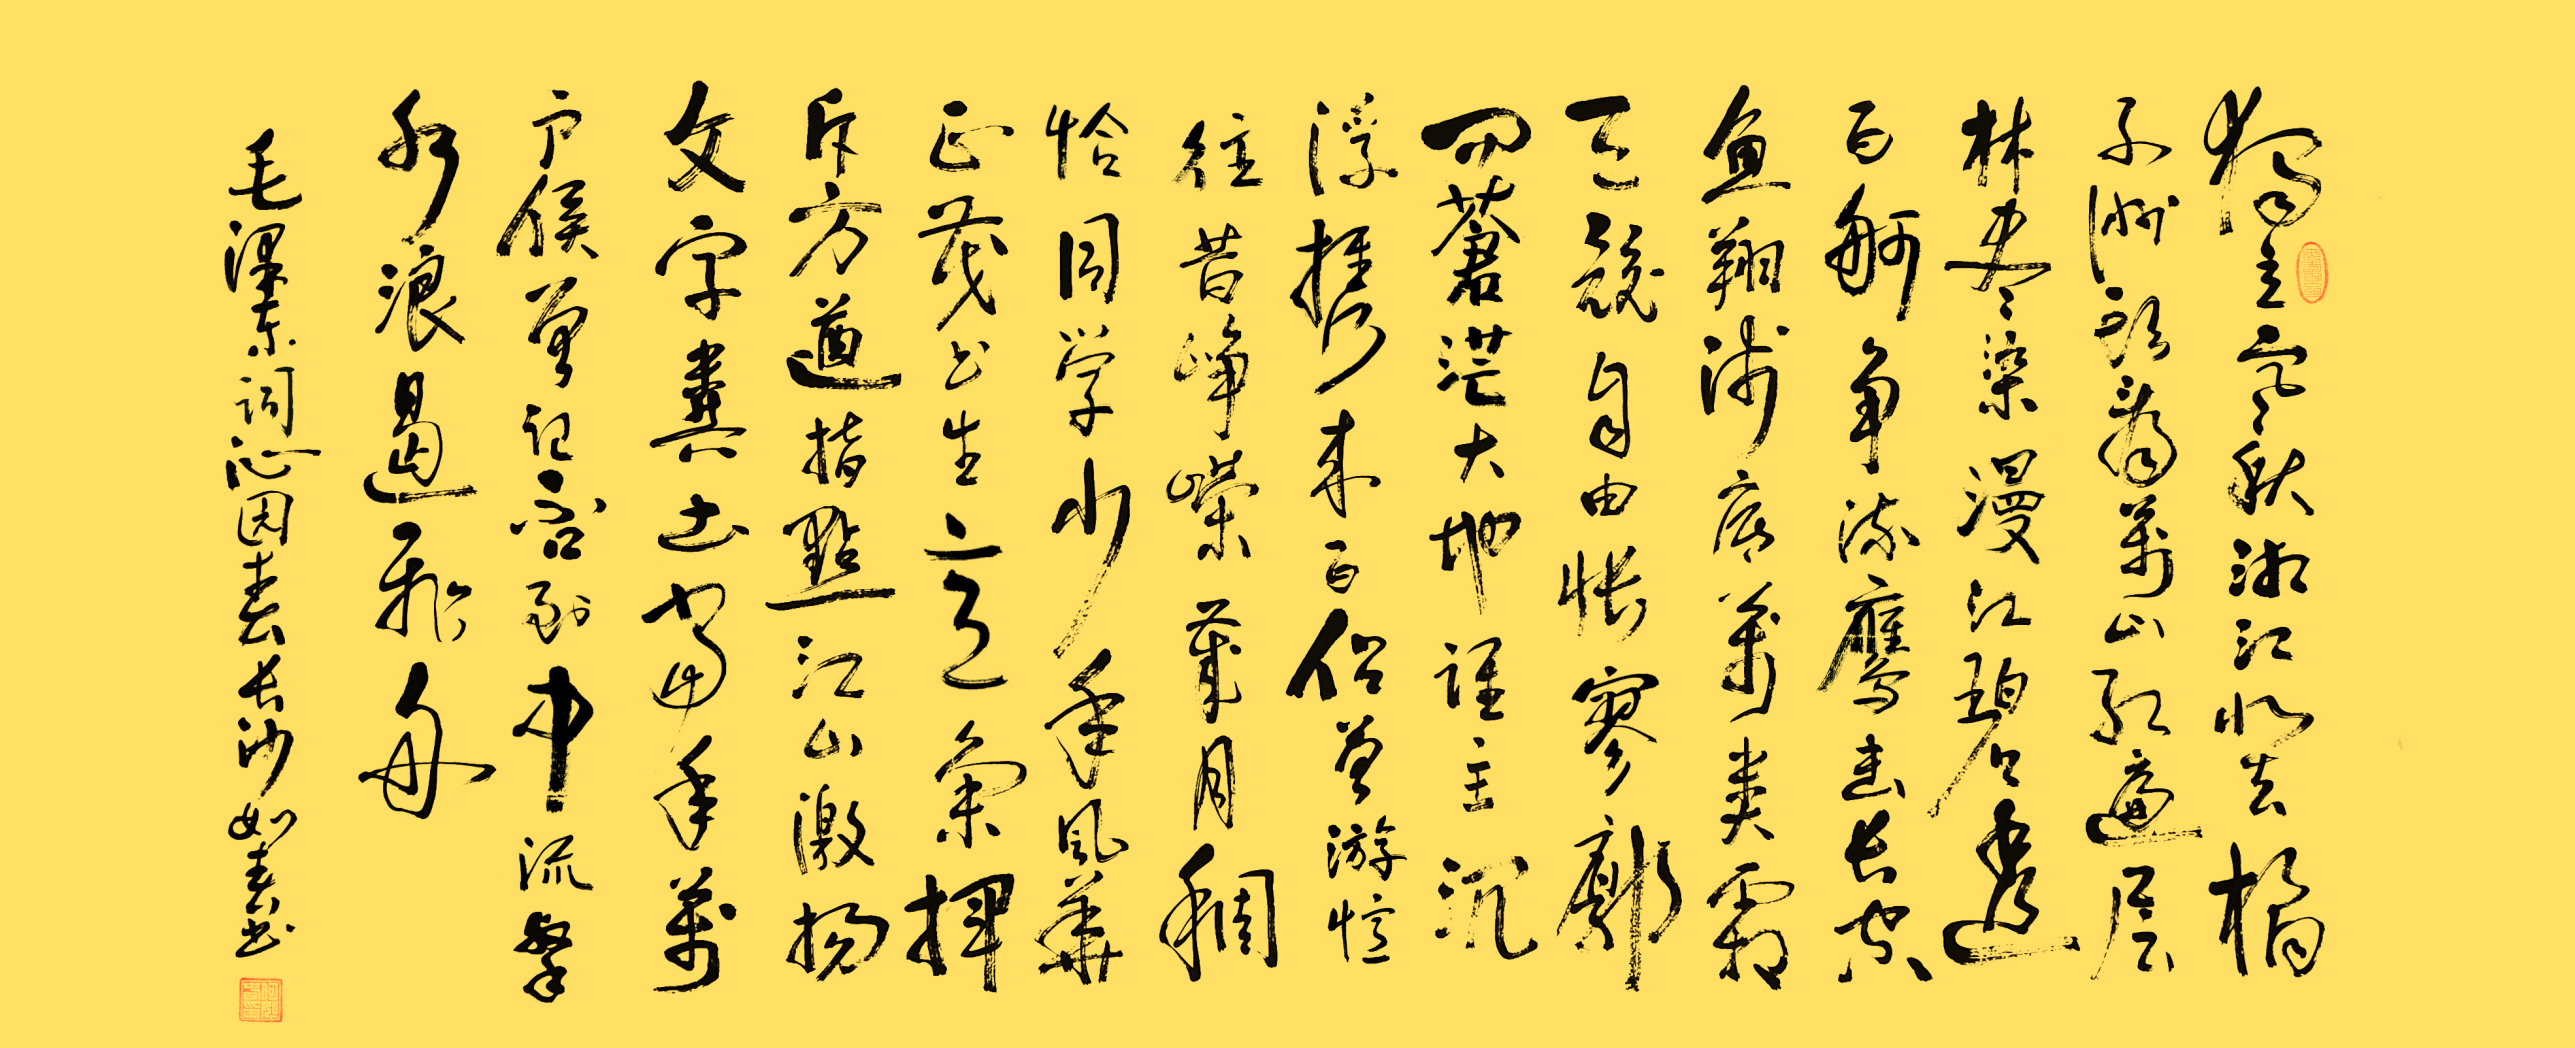 獨立寒秋湘江北去橘
子洲頭看萬山紅遍層
林尽染漫江碧透
百舸争流鹰击长空
魚翔浅底萬类霜
天競自由怅寥廓
问蒼茫大地谁主沉
浮携来百侣曾游忆
往昔峥嵘歲月稠
恰同学少年风華
正茂书生意氣揮
斥方遒指點江山激扬
文字糞土当年萬
户侯曾记否到中流擊
水浪遏飛舟
毛泽东词沁园春长沙如春书